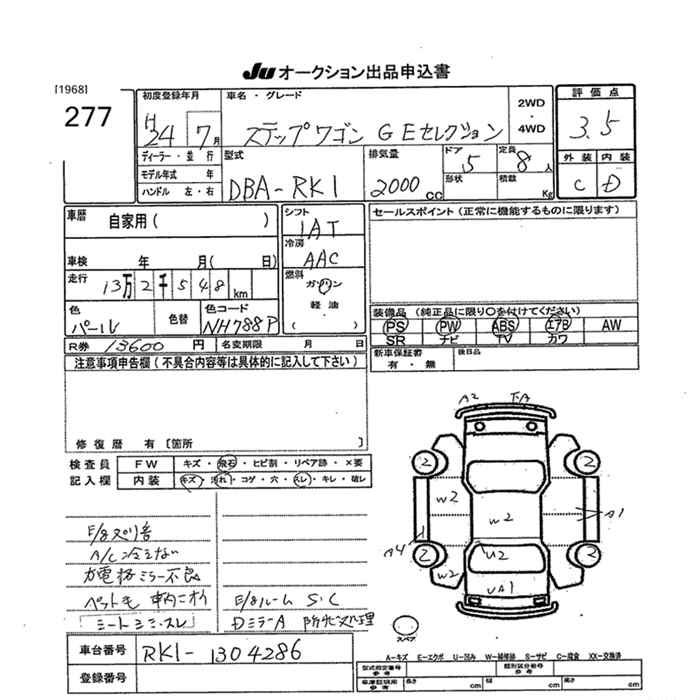 Ju オークション出品申込書
[1968]
277
初度登録年月
H24 7月
車名・グレード
ステップワゴン GEセレクション
2WD
・
4WD
評価点
3.5
外装 内装
C D
ディーラー・並行
モデル年式 年
ハンドル 左・右
型式
DBA-RK1
排気量
2000cc
ドア 5
形状
定員 8人
積数 Kg
車歴 自家用( )
車検 年 月( 日)
走行 13万2千548km
色 パール
色替
色コード NH788P
シフト
IAT
冷房
AAC
燃料
ガソリン
軽油
( )
セールスポイント(正常に機能するものに限ります)
装備品(純正品に限り○を付けてください)
PS PW ABS エアB AW
SR ナビ TV カワ
新車保証書
有・無
後日品
R券 13600円 名変期限 月 日
注意事項申告欄(不具合内容等は具体的に記入して下さい)
修復歴 有[箇所 ]
検査員
記入欄
FW キズ・飛石・ヒビ割・リペア跡・×要
内装 キズ・汚れ・コゲ・穴・スレ・キレ・破レ
A/C冷えない
電格ミラー不良
ペット毛 車内ニオイ
シートシミ・スレ
ルーム S・C
DミラーA
処理
A2
W2
W2
W2
U2
UA1
A1
A4
2
2
2
2
スペア
A-キズ E-エクボ U-凹み W-補修跡 S-サビ C-腐食 XX-交換済
車台番号 RK1-1304286
登録番号
型式指定番号
参考
類別区分番号
参考
長さ cm 幅 cm 高さ cm